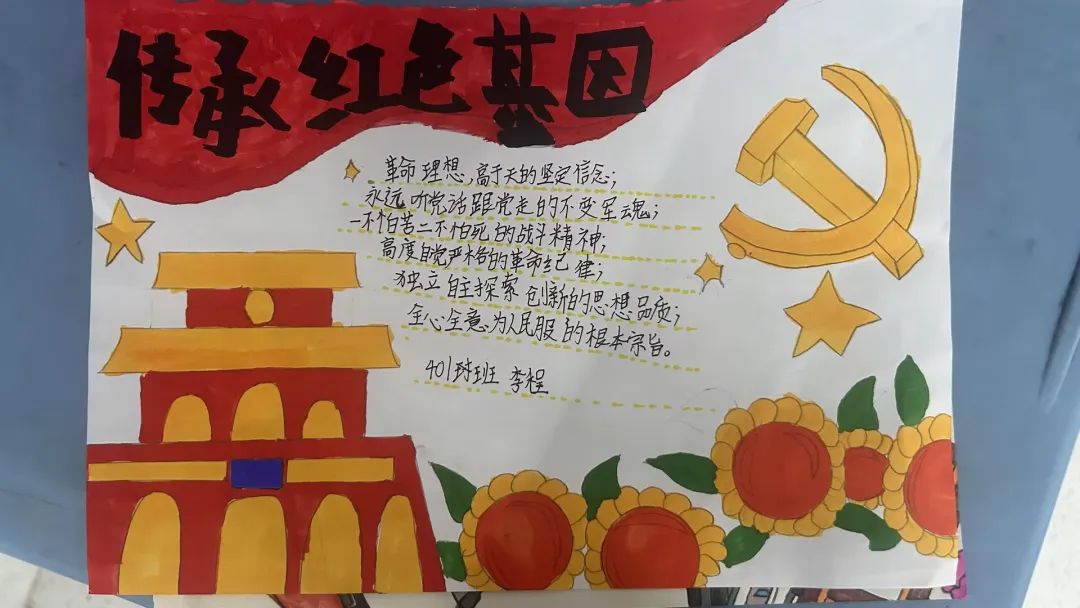 传承红色基因
革命理想,高于天的坚定信念;
永远听党话跟党走的不变军魂;
一不怕苦二不怕死的战斗精神;
高度自觉严格的革命纪律;
独立自主探索创新的思想品质;
全心全意为人民服的根本宗旨。
401球班 李程